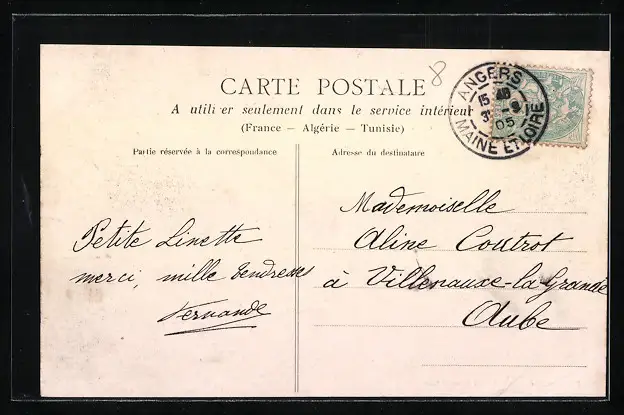 8
CARTE POSTALE
A utiliser seulement dans le service intérieur
(France — Algérie — Tunisie)
ANGERS
15 
3 -9
05
MAINE ET LOIRE
Partie réservée à la correspondance
Petite Linette
merci, mille tendresses
Fernande
Adresse du destinataire
Mademoiselle
Aline Coutrot
à Villenauxe-la Grande
Aube